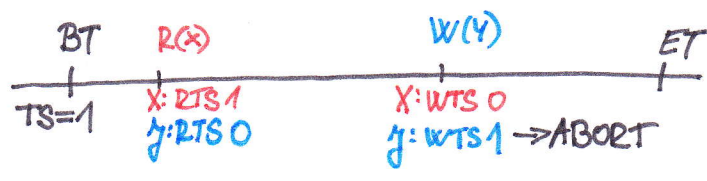 BT R(X) W(Y) ET
TS=1 X:RTS1 X:WTS0
y:RTS0 y:WTS1 →ABORT